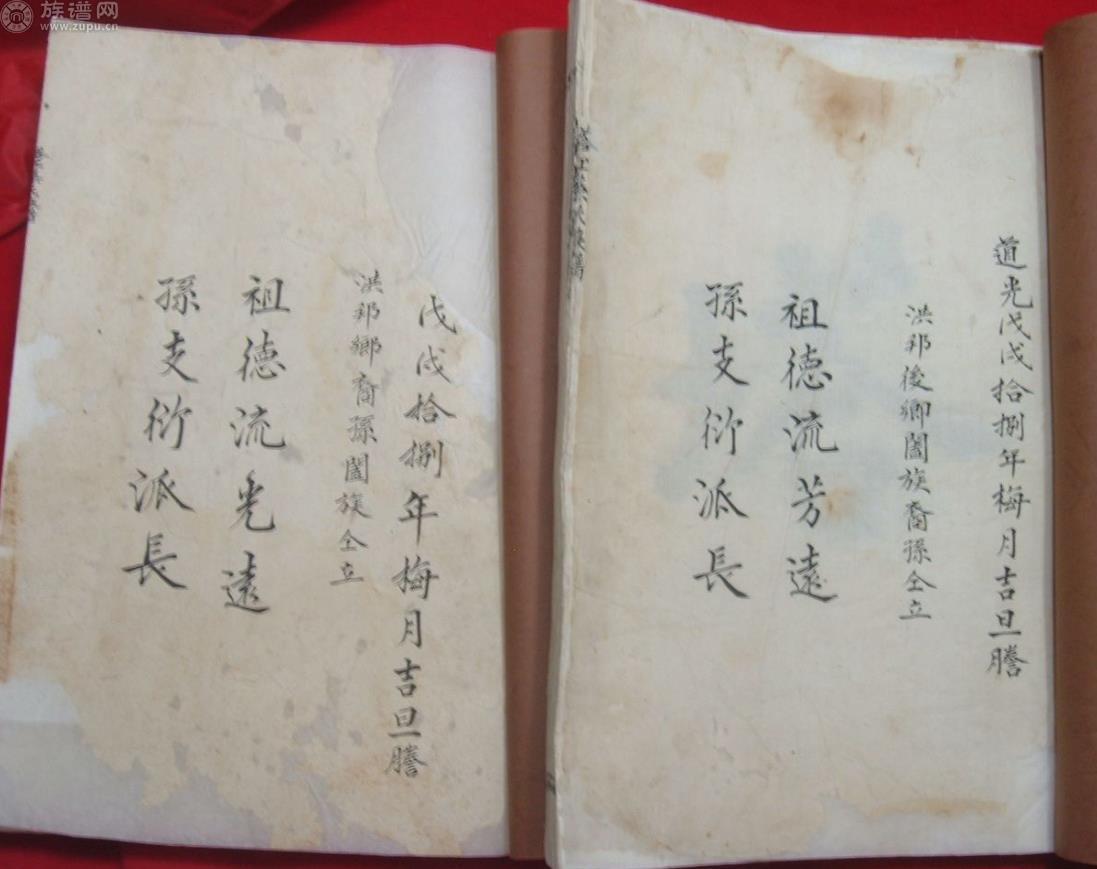 族谱网
www.zupu.cn
道光戊戌拾捌年梅月吉旦謄
洪邦後鄉闔族裔孫仝立
祖德流芳遠
孫支衍派長
戊戌拾捌年梅月吉旦謄
洪邦鄉裔孫闔族仝立
祖德流光遠
孫支衍派長